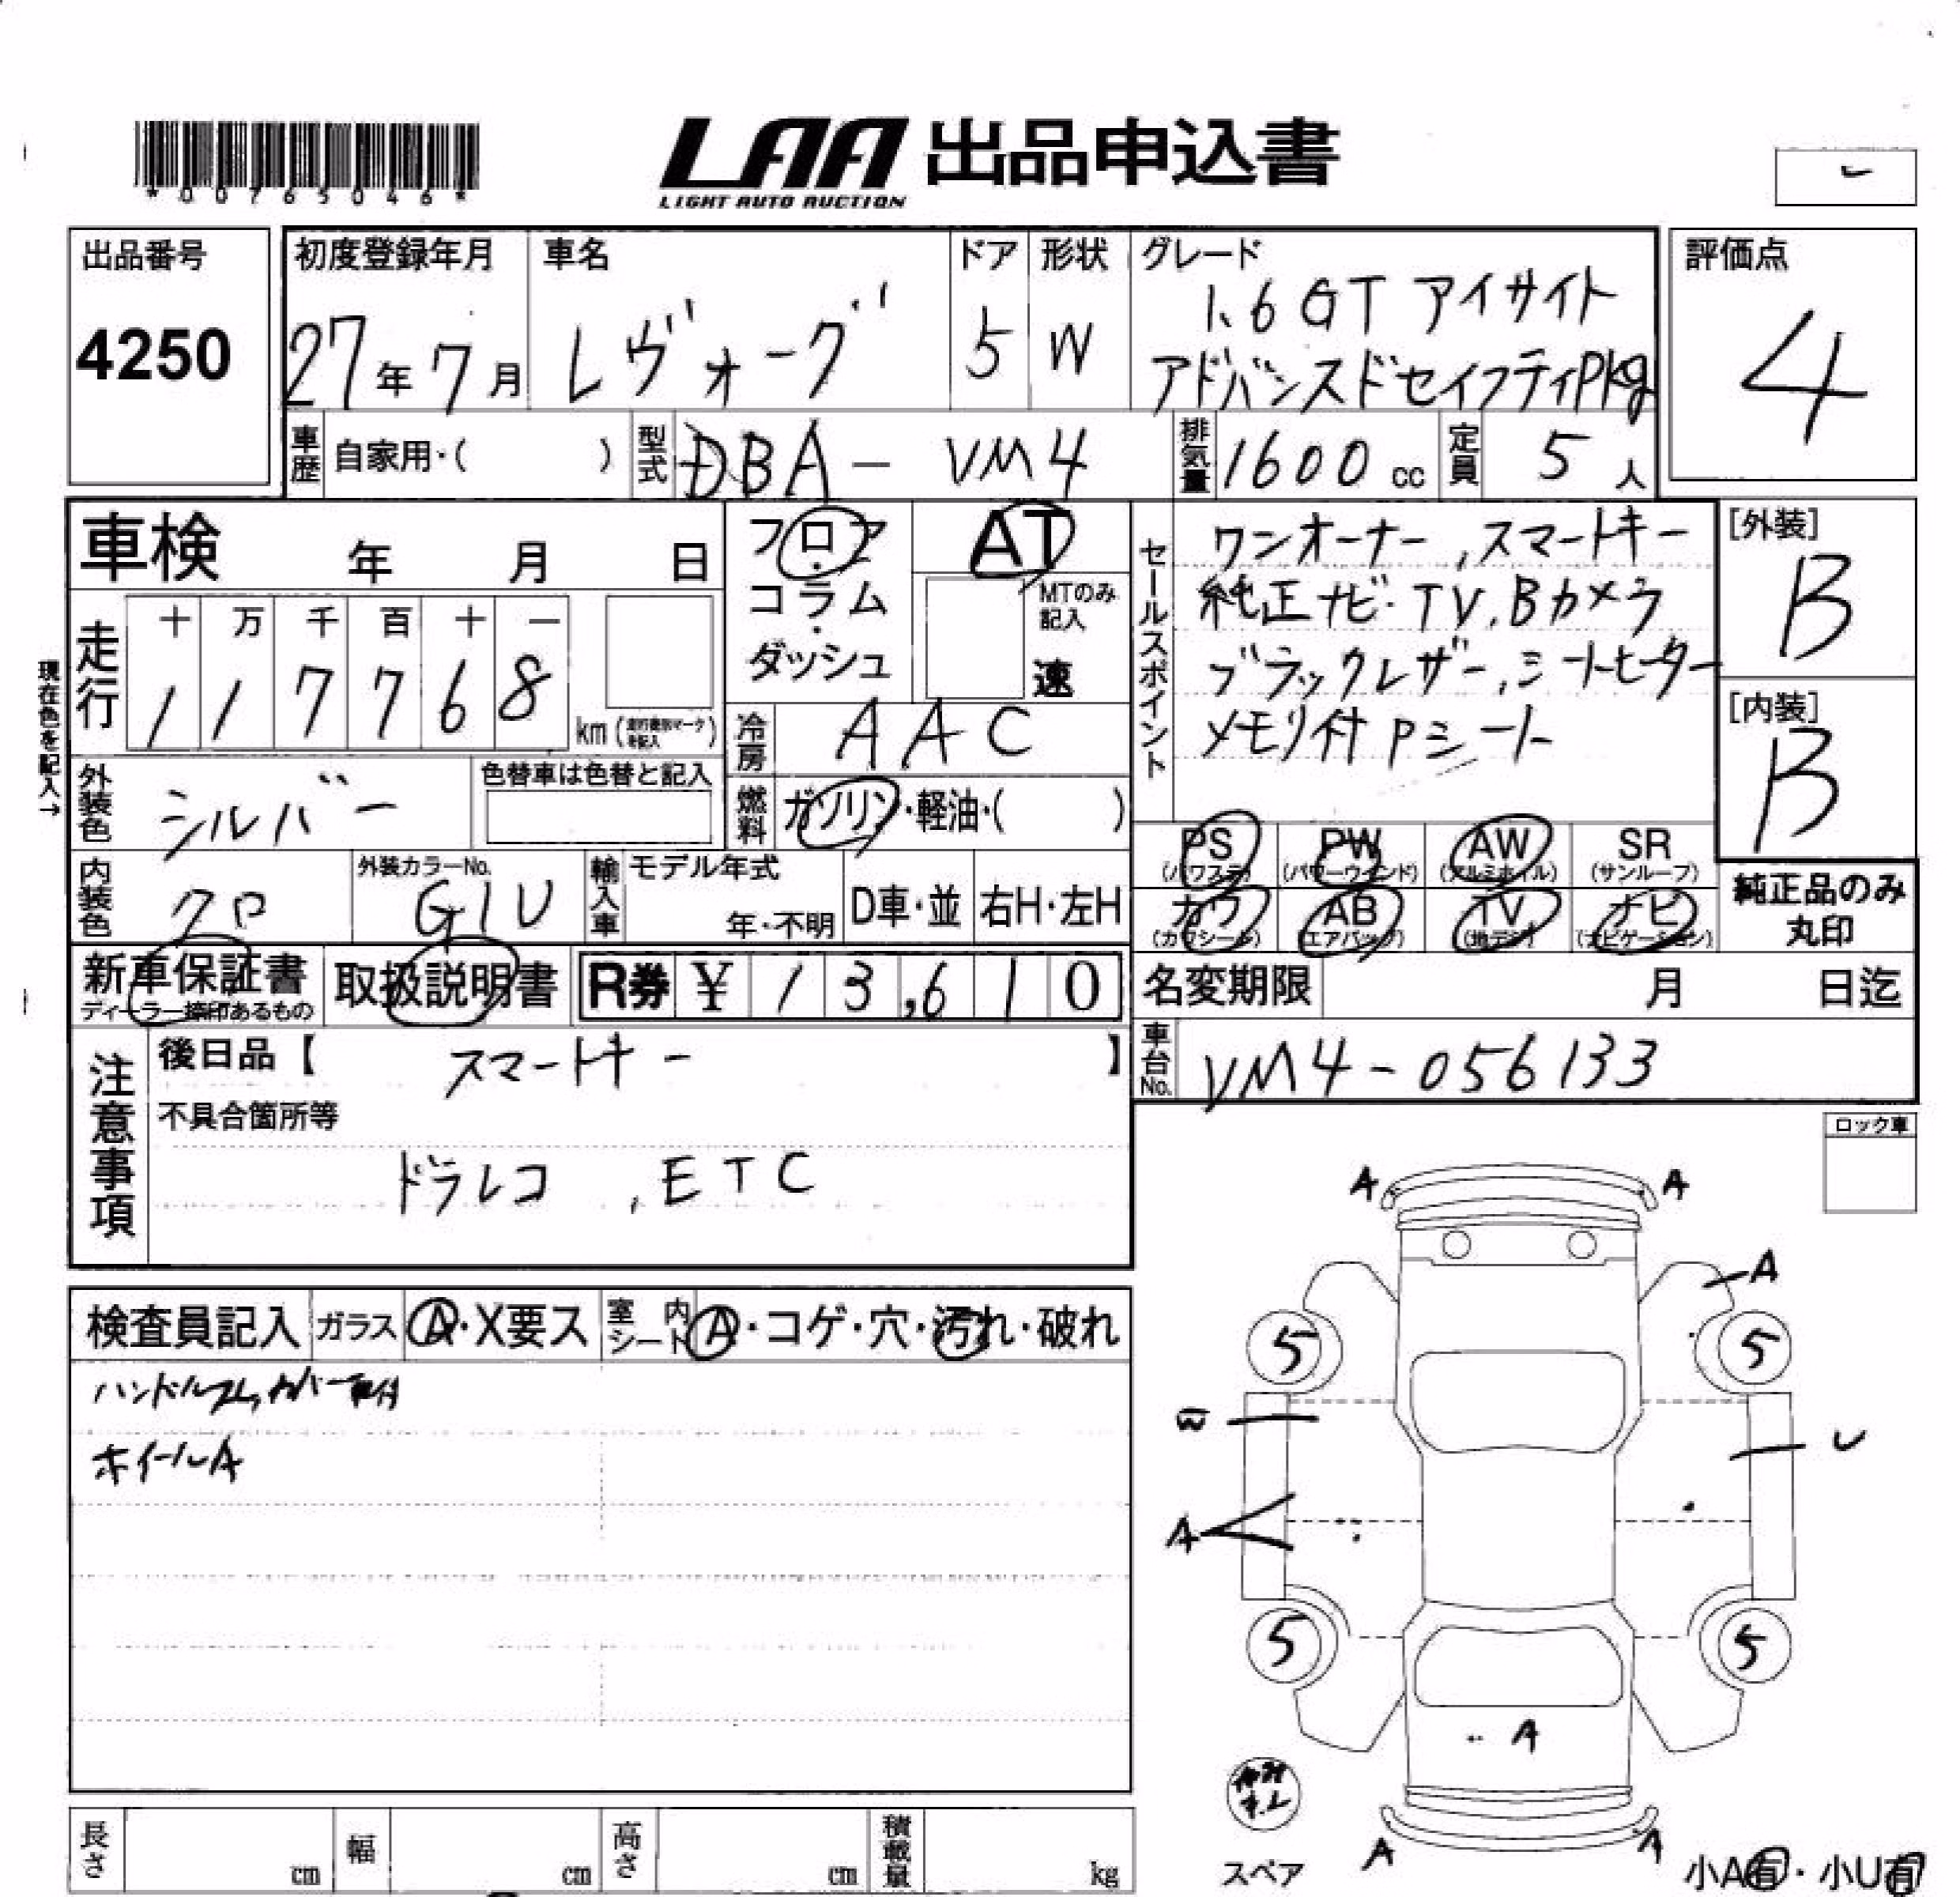 *00765046*
LAA 出品申込書
LIGHT AUTO AUCTION
出品番号
4250
初度登録年月
27年7月
車名
レヴォーグ
ドア
5
形状
W
グレード
1.6GT アイサイト
アドバンスドセイフティPkg
評価点
4
車歴 自家用・( )
型式 DBA - VM4
排気量 1600 cc
定員 5 人
車検 年 月 日
フロア・コラム・ダッシュ
AT
MTのみ記入
速
セールスポイント
ワンオーナー,スマートキー
純正ナビ・TV,Bカメラ
ブラックレザー,シートヒーター
メモリ付Pシート
[外装]
B
[内装]
B
現在色を記入→
走行
十 万 千 百 十 一
1 1 7 7 6 8 km
冷房 AAC
外装色 シルバー
色替車は色替と記入
燃料 ガソリン・軽油・( )
内装色 クロ
外装カラーNo.
G1U
輸入車
モデル年式
年・不明
D車・並
右H・左H
PS (パワステ)
PW (パワーウインド)
AW (アルミホイル)
SR (サンルーフ)
カワ (カワシート)
AB (エアバッグ)
TV (地デジ)
ナビ (ナビゲーション)
純正品のみ丸印
新車保証書
ディーラー捺印あるもの
取扱説明書
R券 ¥13,610
名変期限 月 日迄
車台No. VM4-056133
注意事項
後日品【 スマートキー 】
不具合箇所等
ドラレコ ,ETC
ロック車
検査員記入
ガラス A・X要ス
室内シート A・コゲ・穴・汚れ・破れ
ホイールA
A A
A
5 5
W
U
A
5 5
A
A A
スペア
小A有・小U有
長さ cm
幅 cm
高さ cm
積載量 kg